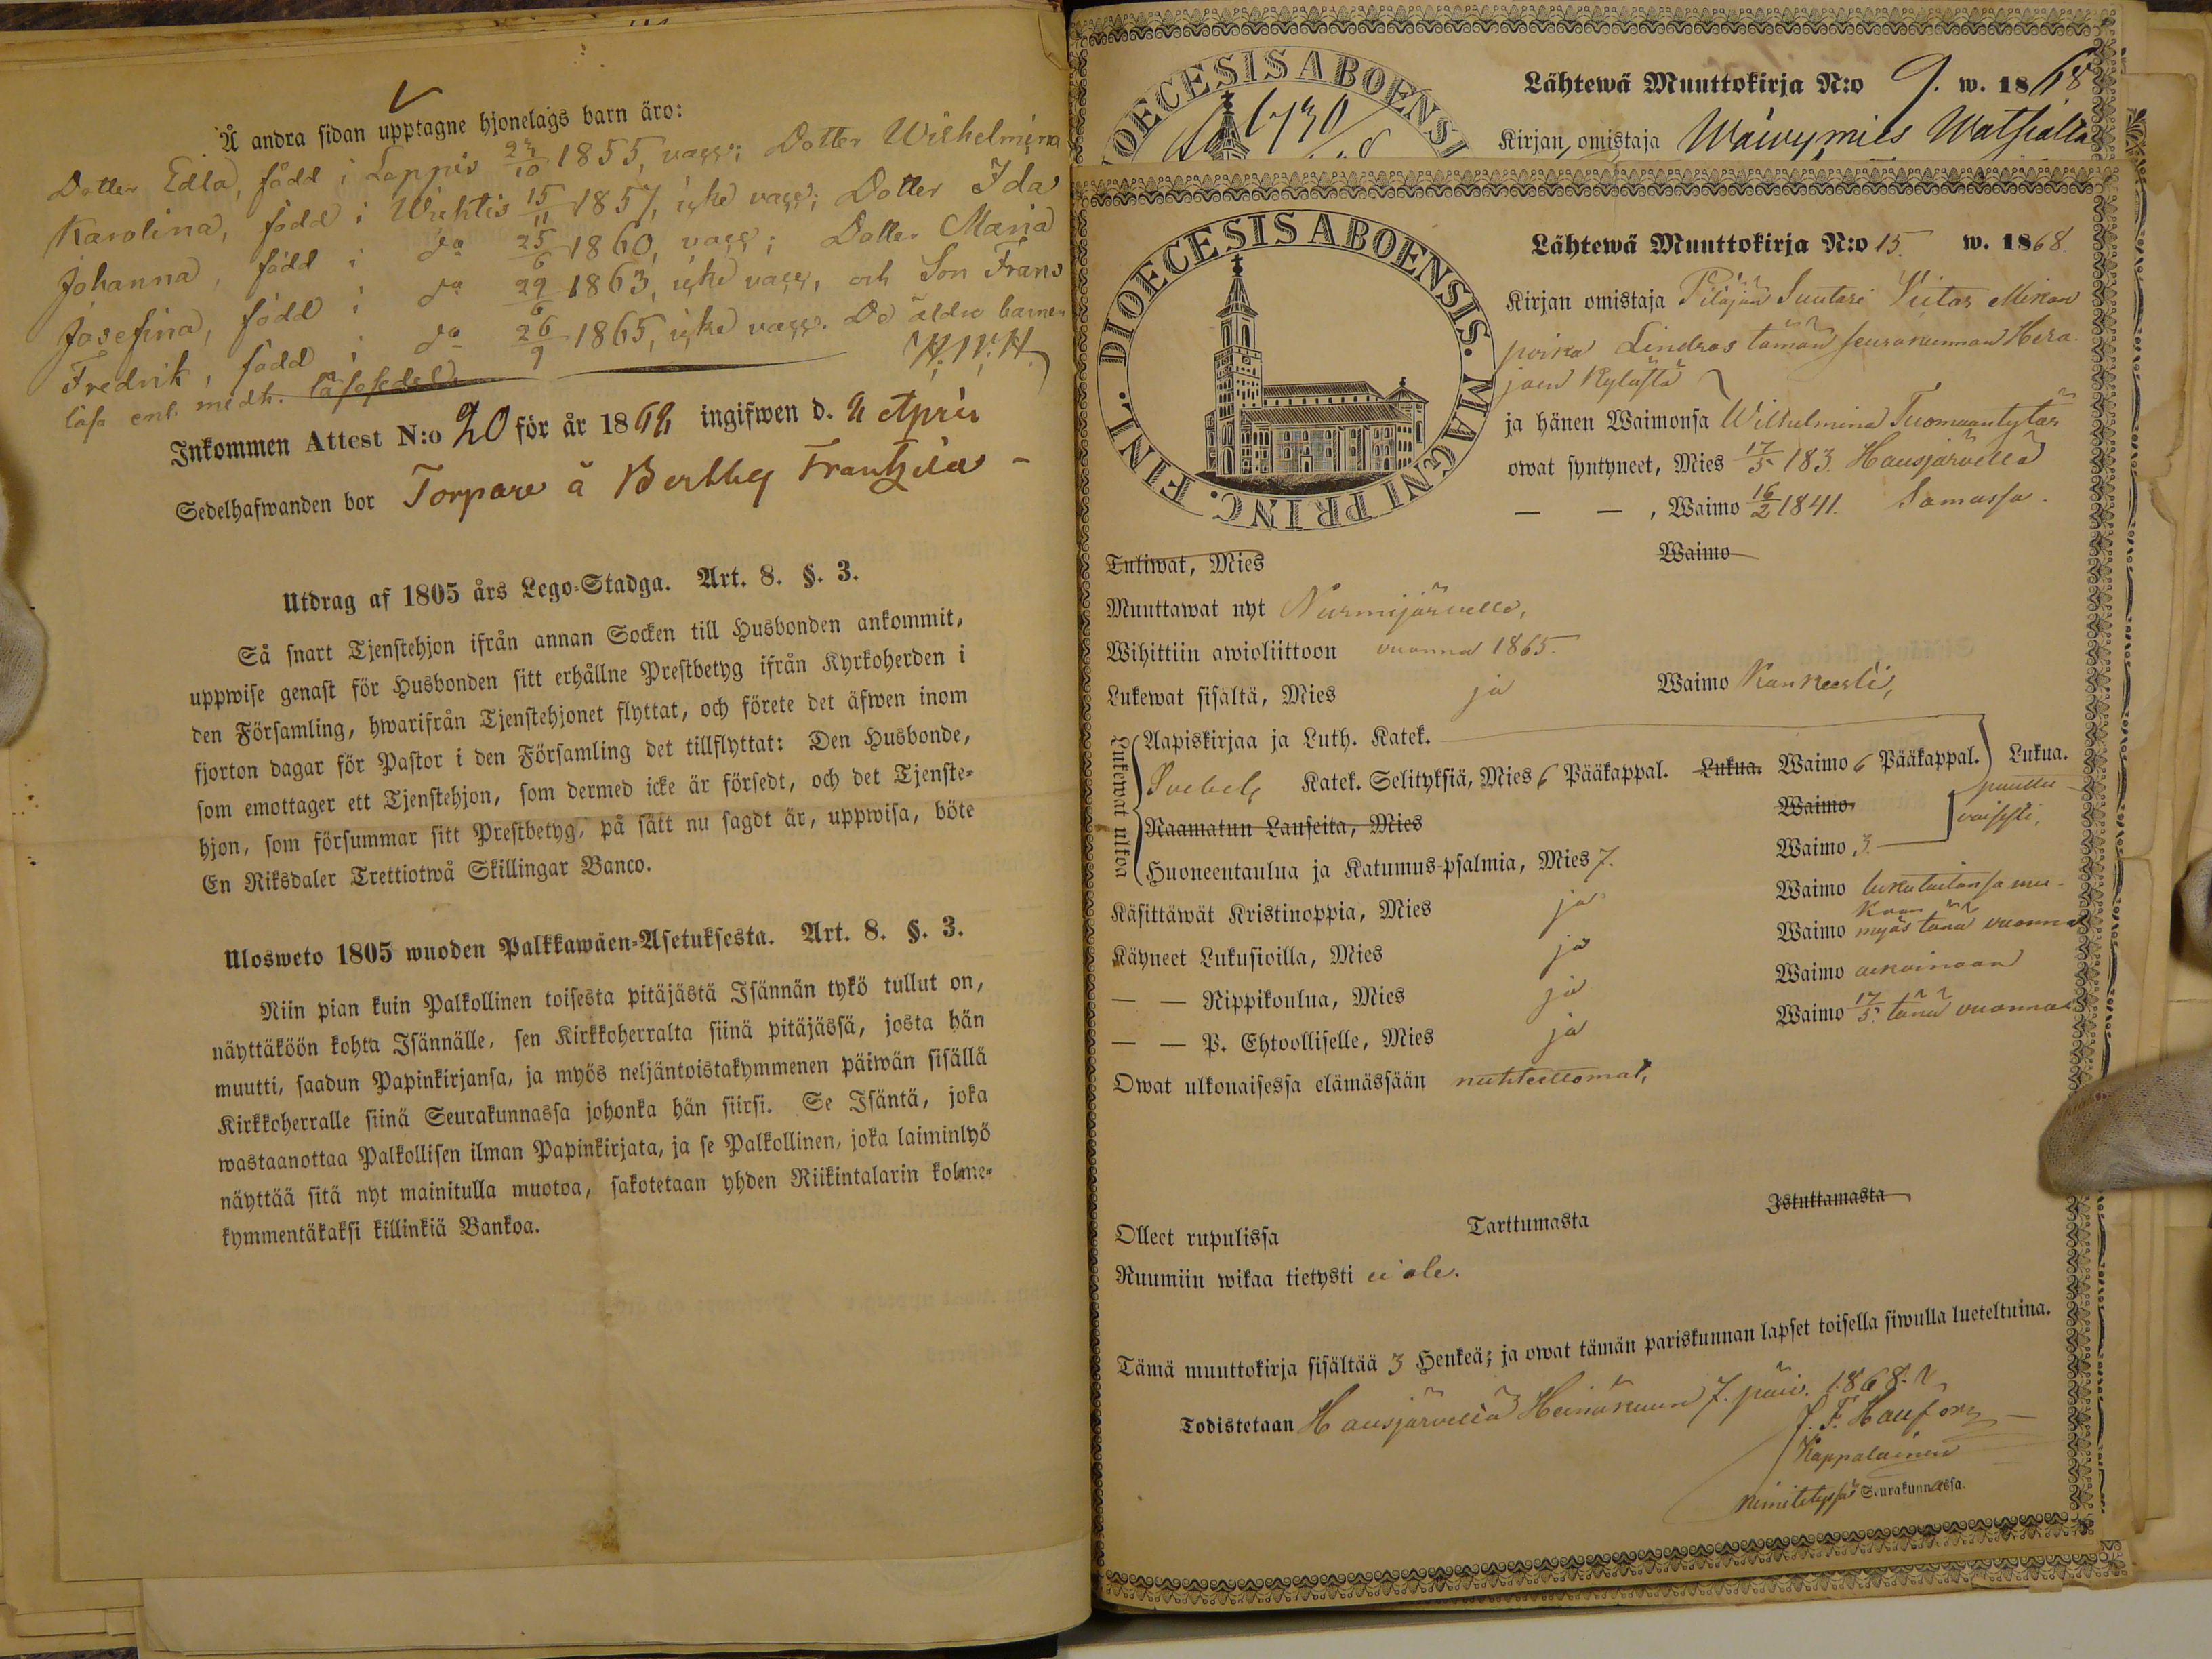 Å andra sidan upptagne hjonelags barn äro:
Dotter Edla, född i Loppis 24/10 1855, vacc; Dotter Wilhelmina
Karolina, född i Wichtis 15/11 1857, icke vacc; Dotter Ida
Johanna, född i do 25/6 1860, vacc; Dotter Maria
Josefina, född i do 29/6 1863, icke vacc, och Son Frans
Fredrik, född i do 26/9 1865, icke vacc. De äldre barnen
läsa enl. medh. läsesedel.
Inkommen Attest N:o 20 för år 1868 ingifwen d. 4 April
Sedelhafwanden bor Torpare å Bertby Frantzila
Utdrag af 1805 års Lego-Stadga. Art. 8. §. 3.
Så snart Tjenstehjon ifrån annan Socken till Husbonden ankommit,
uppwise genast för Husbonden sitt erhållne Prestbetyg ifrån Kyrkoherden i
den Församling, hwarifrån Tjenstehjonet flyttat, och förete det äfwen inom
fjorton dagar för Pastor i den Församling det tillflyttat: Den Husbonde,
som emottager ett Tjenstehjon, som dermed icke är försedt, och det Tjenste-
hjon, som försummar sitt Prestbetyg, på sätt nu sagdt är, uppwisa, böte
En Riksdaler Trettiotwå Skillingar Banco.
Ulosweto 1805 wuoden Palkkawäen-Asetuksesta. Art. 8. §. 3.
Niin pian kuin Palkollinen toisesta pitäjästä Isännän tykö tullut on,
näyttäköön kohta Isännälle, sen Kirkkoherralta siinä pitäjässä, josta hän
muutti, saadun Papinkirjansa, ja myös neljäntoistakymmenen päiwän sisällä
Kirkkoherralle siinä Seurakunnassa johonka hän siirsi. Se Isäntä, joka
wastaanottaa Palkollisen ilman Papinkirjata, ja se Palkollinen, joka laiminlyö
näyttää sitä nyt mainitulla muotoa, sakotetaan yhden Riikintalarin kolme-
kymmentäkaksi killinkiä Bankoa.
DIOECESIS ABOENSI
Lähtewä Muuttokirja N:o 9. w. 1868
Kirjan omistaja Wäwymies Watsialla
DIOECESIS ABOENSIS. MAGNI PRINC. FINL.
Lähtewä Muuttokirja N:o 15. w. 1868.
Kirjan omistaja Pitäjän Suutari Wiktor Mikon
poika Lindros tämän seurakunnan Hera-
joen Kylästä
ja hänen Waimonsa Wilhelmina Tuomaantytär
owat syntyneet, Mies 17/5 183 Hausjärvellä
— — , Waimo 16/2 1841. Samassa.
Tuliwat, Mies Waimo
Muuttawat nyt Nurmijärvelle,
Wihittiin awioliittoon vuonna 1865.
Lukewat sisältä, Mies ja Waimo Kankeesti,
Lukewat ulkoa
Aapiskirjaa ja Luth. Katek.
Svebel. Katek. Selityksiä, Mies 6 Pääkappal. Lukua. Waimo 6 Pääkappal. Lukua.
Raamatun Lauseita, Mies Waimo, puuttuvaisesti,
Huoneentaulua ja Katumus-psalmia, Mies 7. Waimo 3.
Käsittäwät Kristinoppia, Mies ja Waimo lukutaitonsa mu-
kaan
Käyneet Lukusioilla, Mies ja Waimo myös tänä vuonna
— — Rippikoulua, Mies ja Waimo aikoinaan
— — P. Ehtoolliselle, Mies ja Waimo 17/5. tänä vuonna
Owat ulkonaisessa elämässään nuhteettomat,
Olleet rupulissa Tarttumasta Istuttamasta
Ruumiin wikaa tietysti ei ole.
Tämä muuttokirja sisältää 3 Henkeä; ja owat tämän pariskunnan lapset toisella siwulla lueteltuina.
Todistetaan Hausjärvellä Heinäkuun 7. päiv. 1868.
Kappalainen
nimitetyssä Seurakunnassa.